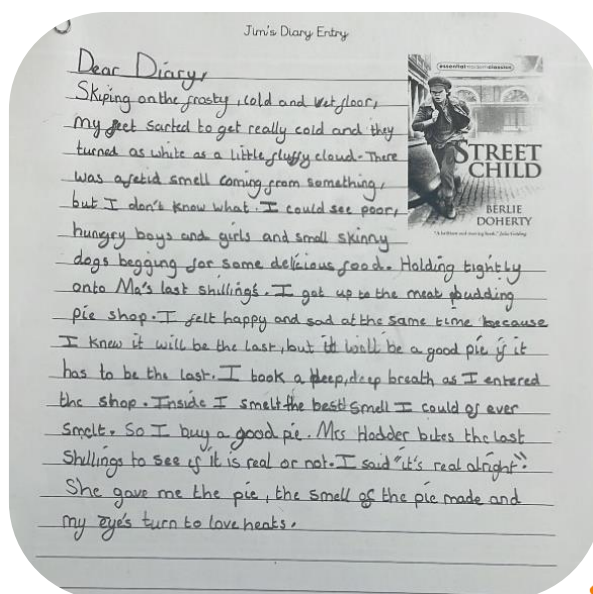 Jim's Diary Entry
Dear Diary,
Skiping on the frosty, cold and wet floor,
my feet sarted to get really cold and they
turned as white as a little fluffy cloud. There
was a fetid smell coming from something,
but I don't know what. I could see poor,
hungry boys and girls and small skinny
dogs begging for some delicious food. Holding tightly
onto Ma's last shilling's. I got up to the meat pudding
pie shop. I felt happy and sad at the same time because
I knew it will be the last, but it will be a good pie if it
has to be the last. I took a deep, deep breath as I entered
the shop. Inside I smelt the best smell I could of ever
smelt. So I buy a good pie. Mrs Hodder bites the last
Shillings to see if it is real or not. I said "it's real alright".
She gave me the pie, the smell of the pie made and
my eye's turn to love heats.
essential modern classics
STREET
CHILD
BERLIE
DOHERTY